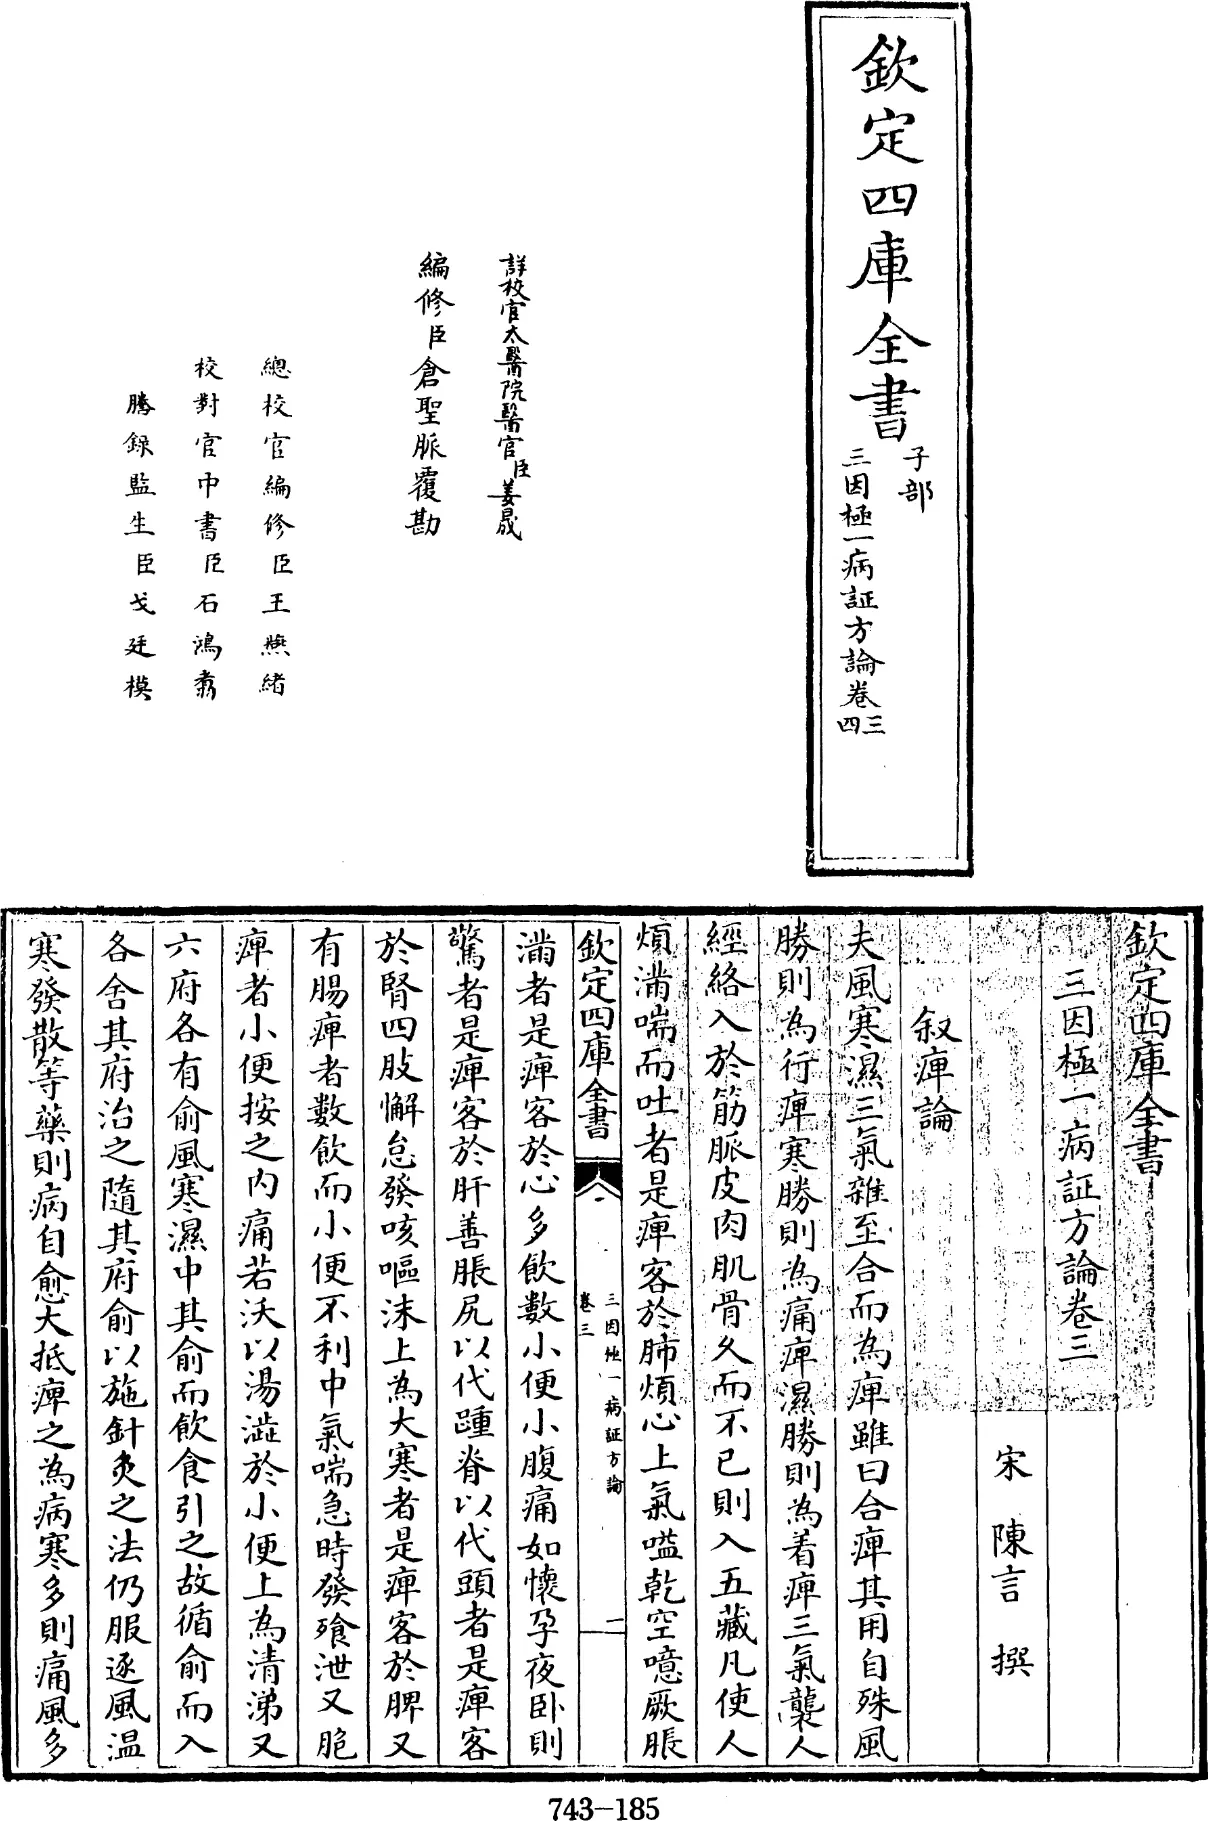 欽定四庫全書
子部
三因極一病証方論卷三四
詳校官太醫院醫官臣姜晟
編修臣倉聖脈覆勘
總校官編修臣王燕緒
校對官中書臣石鴻翥
謄録監生臣戈廷模
欽定四庫全書
三因極一病証方論卷三
宋 陳言 撰
叙痺論
夫風寒濕三氣雜至合而為痺雖曰合痺其用自殊風
勝則為行痺寒勝則為痛痺濕勝則為着痺三氣襲人
經絡入於筋脈皮肉肌骨久而不已則入五藏凡使人
煩滿喘而吐者是痺客於肺煩心上氣嗌乾空噫厥脹
欽定四庫全書
三因極一病証方論
卷三
一
滿者是痺客於心多飲數小便小腹痛如懷孕夜卧則
驚者是痺客於肝善脹尻以代踵脊以代頭者是痺客
於腎四肢懈怠發咳嘔沫上為大寒者是痺客於脾又
有腸痺者數飲而小便不利中氣喘急時發飱泄又胞
痺者小便按之内痛若沃以湯澁於小便上為清涕又
六府各有俞風寒濕中其俞而飲食引之故循俞而入
各舍其府治之隨其府俞以施針灸之法仍服逐風温
寒發散等藥則病自愈大抵痺之為病寒多則痛風多
743-185